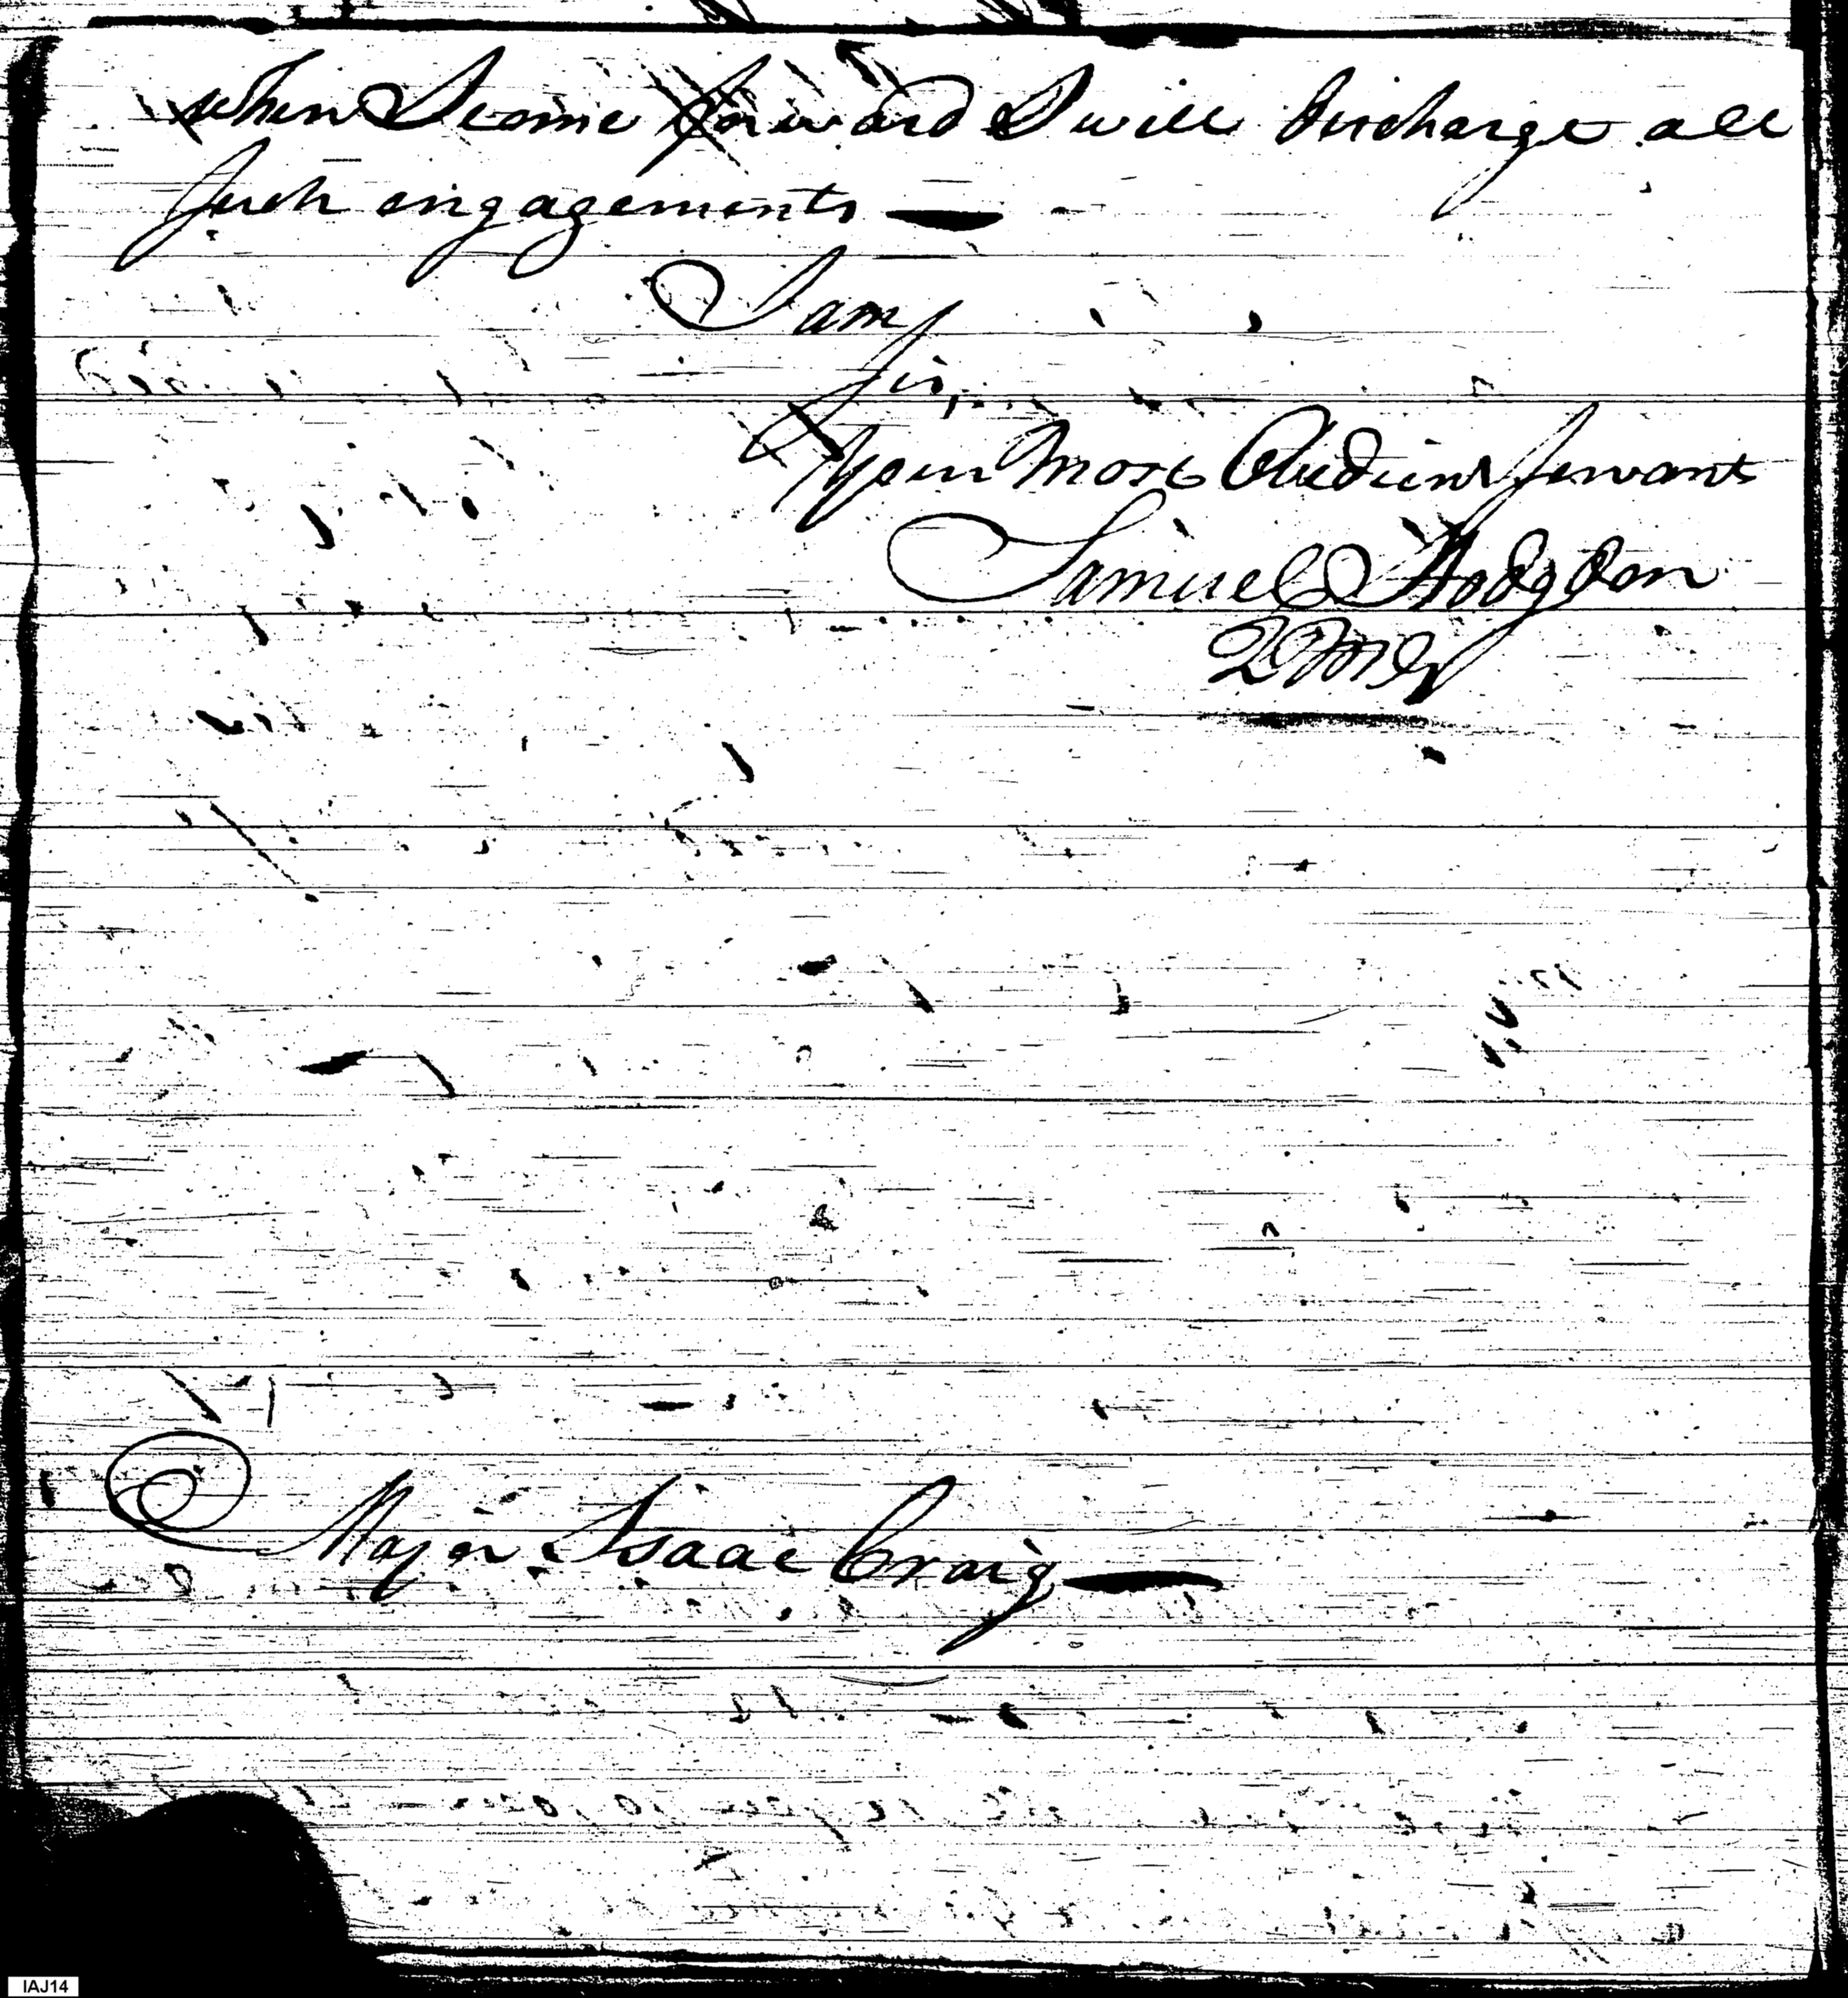 when I come forward I will discharge all
such engagements —
I am
Sir,
Your most Obedient servant
Samuel Hodgdon
QMG
Major Isaac Craig —
IAJ14